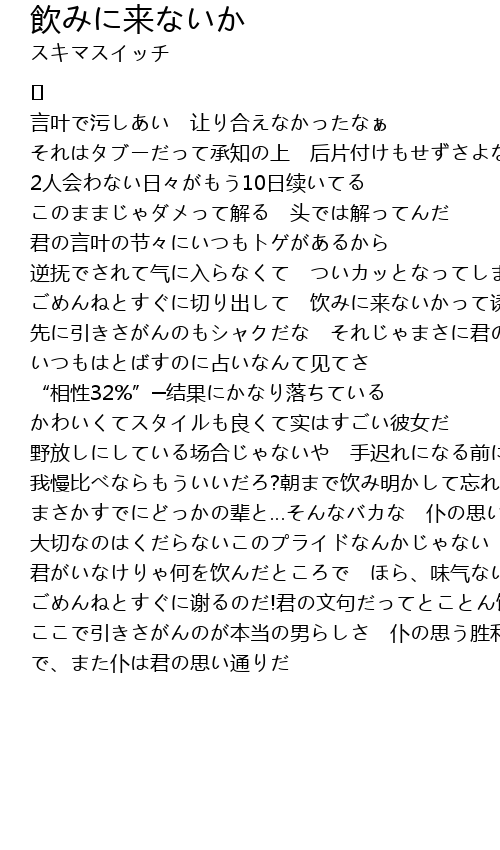 飲みに来ないか
スキマスイッチ
[]
言叶で污しあい　让り合えなかったなぁ
それはタブーだって承知の上　后片付けもせずさよな
2人会わない日々がもう10日续いてる
このままじゃダメって解る　头では解ってんだ
君の言叶の节々にいつもトゲがあるから
逆抚でされて气に入らなくて　ついカッとなってしま
ごめんねとすぐに切り出して　饮みに来ないかって诱
先に引きさがんのもシャクだな　それじゃまさに君の
いつもはとばすのに占いなんて见てさ
“相性32%”─结果にかなり落ちている
かわいくてスタイルも良くて实はすごい彼女だ
野放しにしている场合じゃないや　手迟れになる前に
我慢比べならもういいだろ?朝まで饮み明かして忘れ
まさかすでにどっかの辈と…そんなバカな　仆の思い
大切なのはくだらないこのプライドなんかじゃない
君がいなけりゃ何を饮んだところで　ほら、味气ない
ごめんねとすぐに谢るのだ!君の文句だってとことん饮
ここで引きさがんのが本当の男らしさ　仆の思う胜利
で、また仆は君の思い通りだ